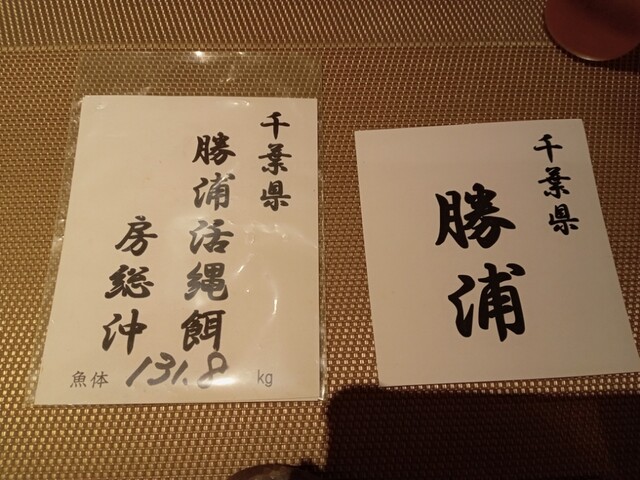 千葉県
勝浦活縄餌
房総沖
魚体 131.8 kg
千葉県
勝浦